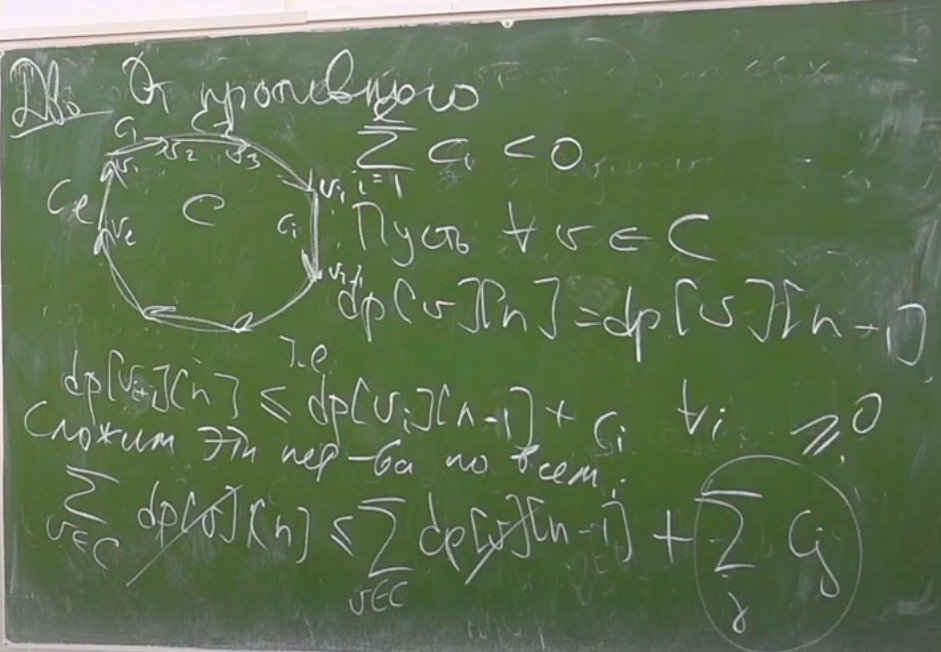 Д-во От противного
C₁ C₂
v₁ v₂ v₃ vᵢ
Cₑ C cᵢ
vₑ vᵢ₊₁
∑ᵢ₌₁ˡ cᵢ < 0
Пусть ∀ v ∈ C
dp[v][n] = dp[v][n-1]
т.е
dp[vᵢ₊₁][n] ≤ dp[vᵢ][n-1] + cᵢ ∀i ≥ 0
Сложим эти нер-ва по всем i
∑_{v∈C} dp[v][n] ≤ ∑_{v∈C} dp[v][n-1] + ∑_j cⱼ